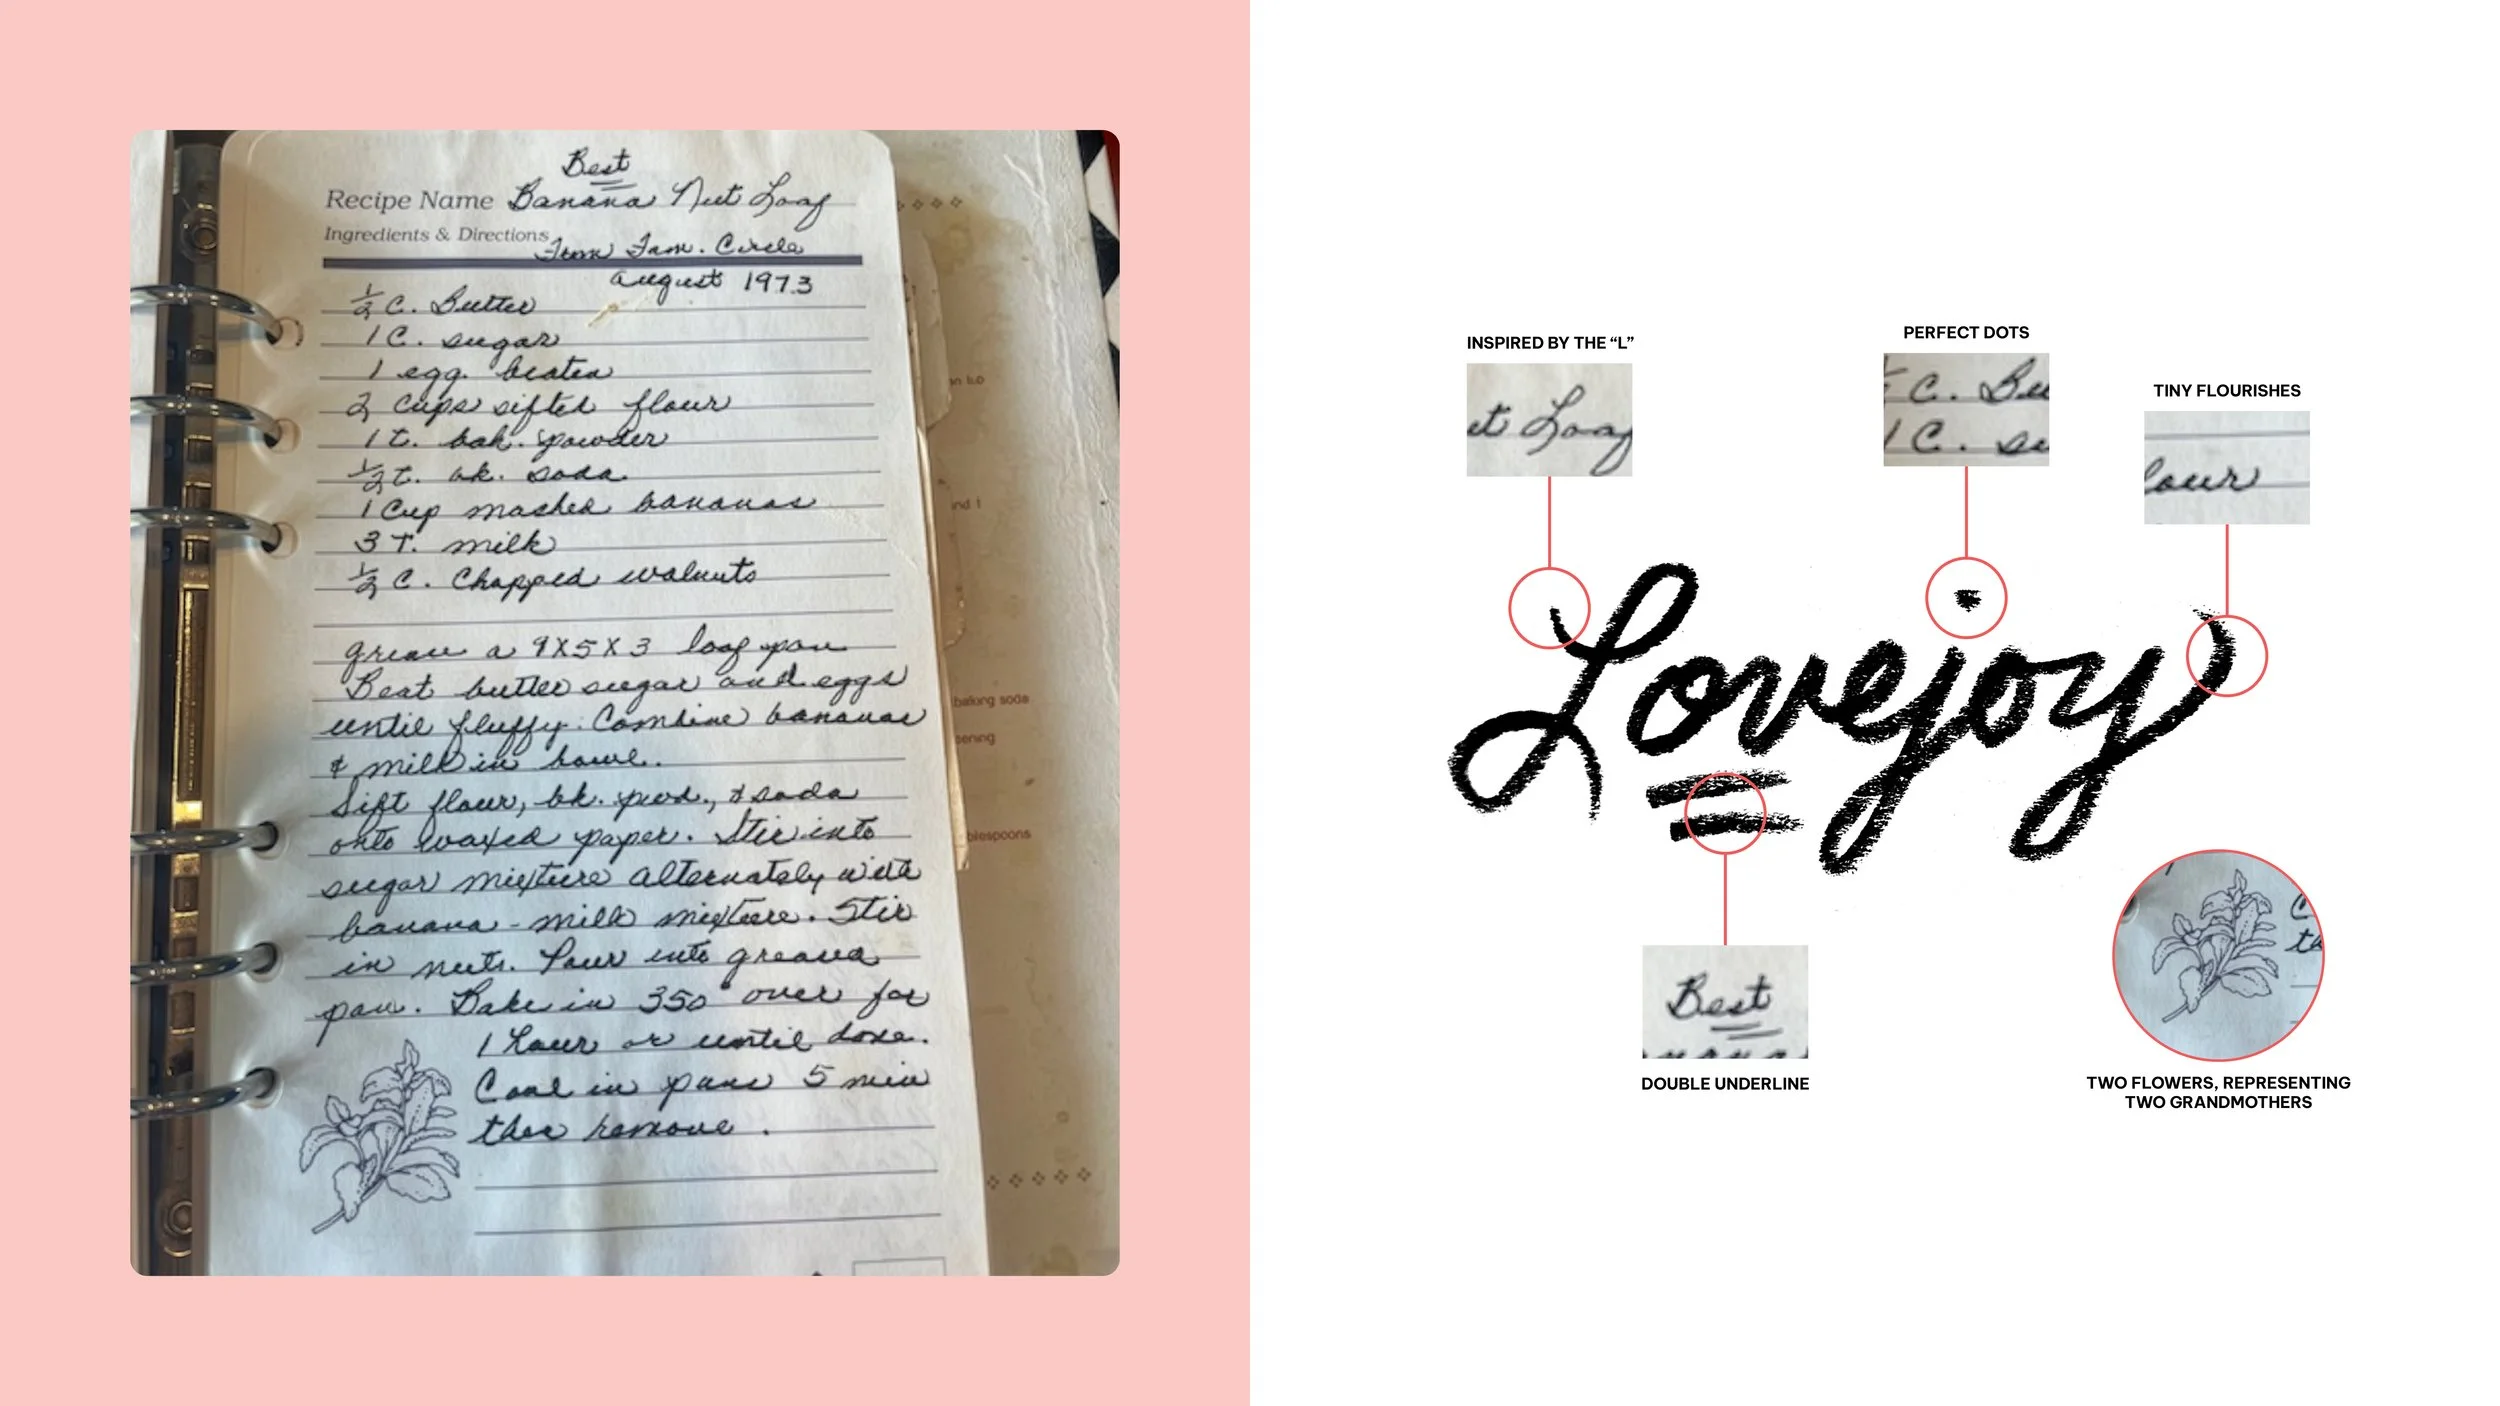 Best
Recipe Name Banana Nut Loaf
Ingredients & Directions
From Fam. Circle
August 1973
1/2 C. Butter
1 C. sugar
1 egg beaten
2 cups sifted flour
1 t. bak. powder
1/2 t. bk. soda
1 Cup mashed bananas
3 T. milk
1/2 C. Chopped walnuts
grease a 9X5X3 loaf pan
Beat butter sugar and eggs
until fluffy. Combine bananas
& milk in bowl.
Sift flour, bk. pwd., & soda
onto waxed paper. Stir into
sugar mixture alternately with
banana-milk mixture. Stir
in nuts. Pour into greased
pan. Bake in 350° oven for
1 hour or until done.
Cool in pans 5 min
then remove.
nd 1
baking soda
blespoons
INSPIRED BY THE “L”
ut Loaf
PERFECT DOTS
C. Bu
1 C. su
TINY FLOURISHES
lour
Lovejoy
Best
DOUBLE UNDERLINE
TWO FLOWERS, REPRESENTING
TWO GRANDMOTHERS